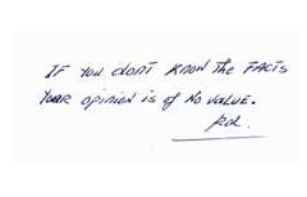 IF YOU DON'T KNOW The FACTS
YOUR opinion is of No VALUE.